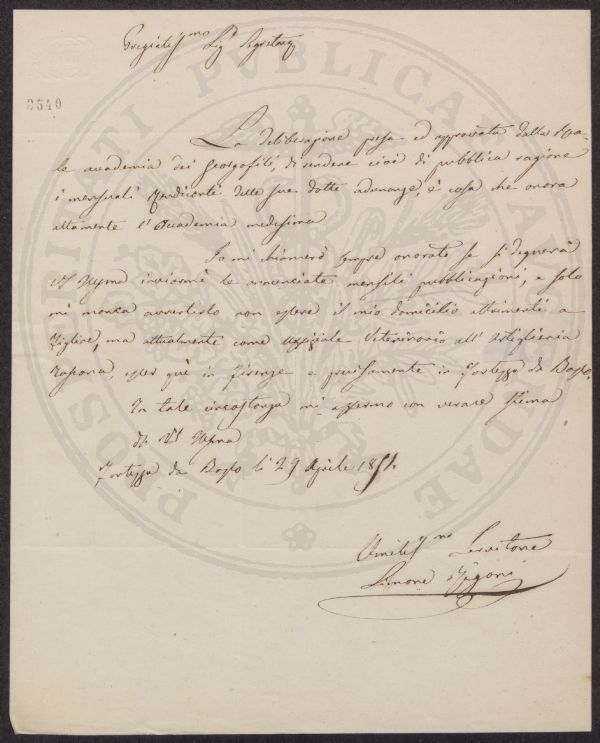 Pregiatissmo Sigr Segretario
2540
La deliberazione presa ed approvata dalla Rea-
le accademia dei Georgofili, di rendere cioè di pubblica ragione
i mensuali Rendiconti delle sue dotte adunanze, è cosa che onora
altamente l'Accademia medesima
Io mi chiamerò sempre onorato se si degnerà
VS Illma inviarmi le annunciate mensili pubblicazioni, e solo
mi manca avvertirlo non essere il mio domicilio altrimenti a
Figline, ma attualmente come Uffiziale Veterinario all' Artiglieria
Toscana, esser quà in Firenze e precisamente in Fortezza da Basso.
In tale circostanza mi affermo con verace stima
di VS Illma
Fortezza da Basso li 29 Aprile 1851.
Umilissmo Servitore
Simone
PROSPERITATI PUBLICAE AUGENDAE